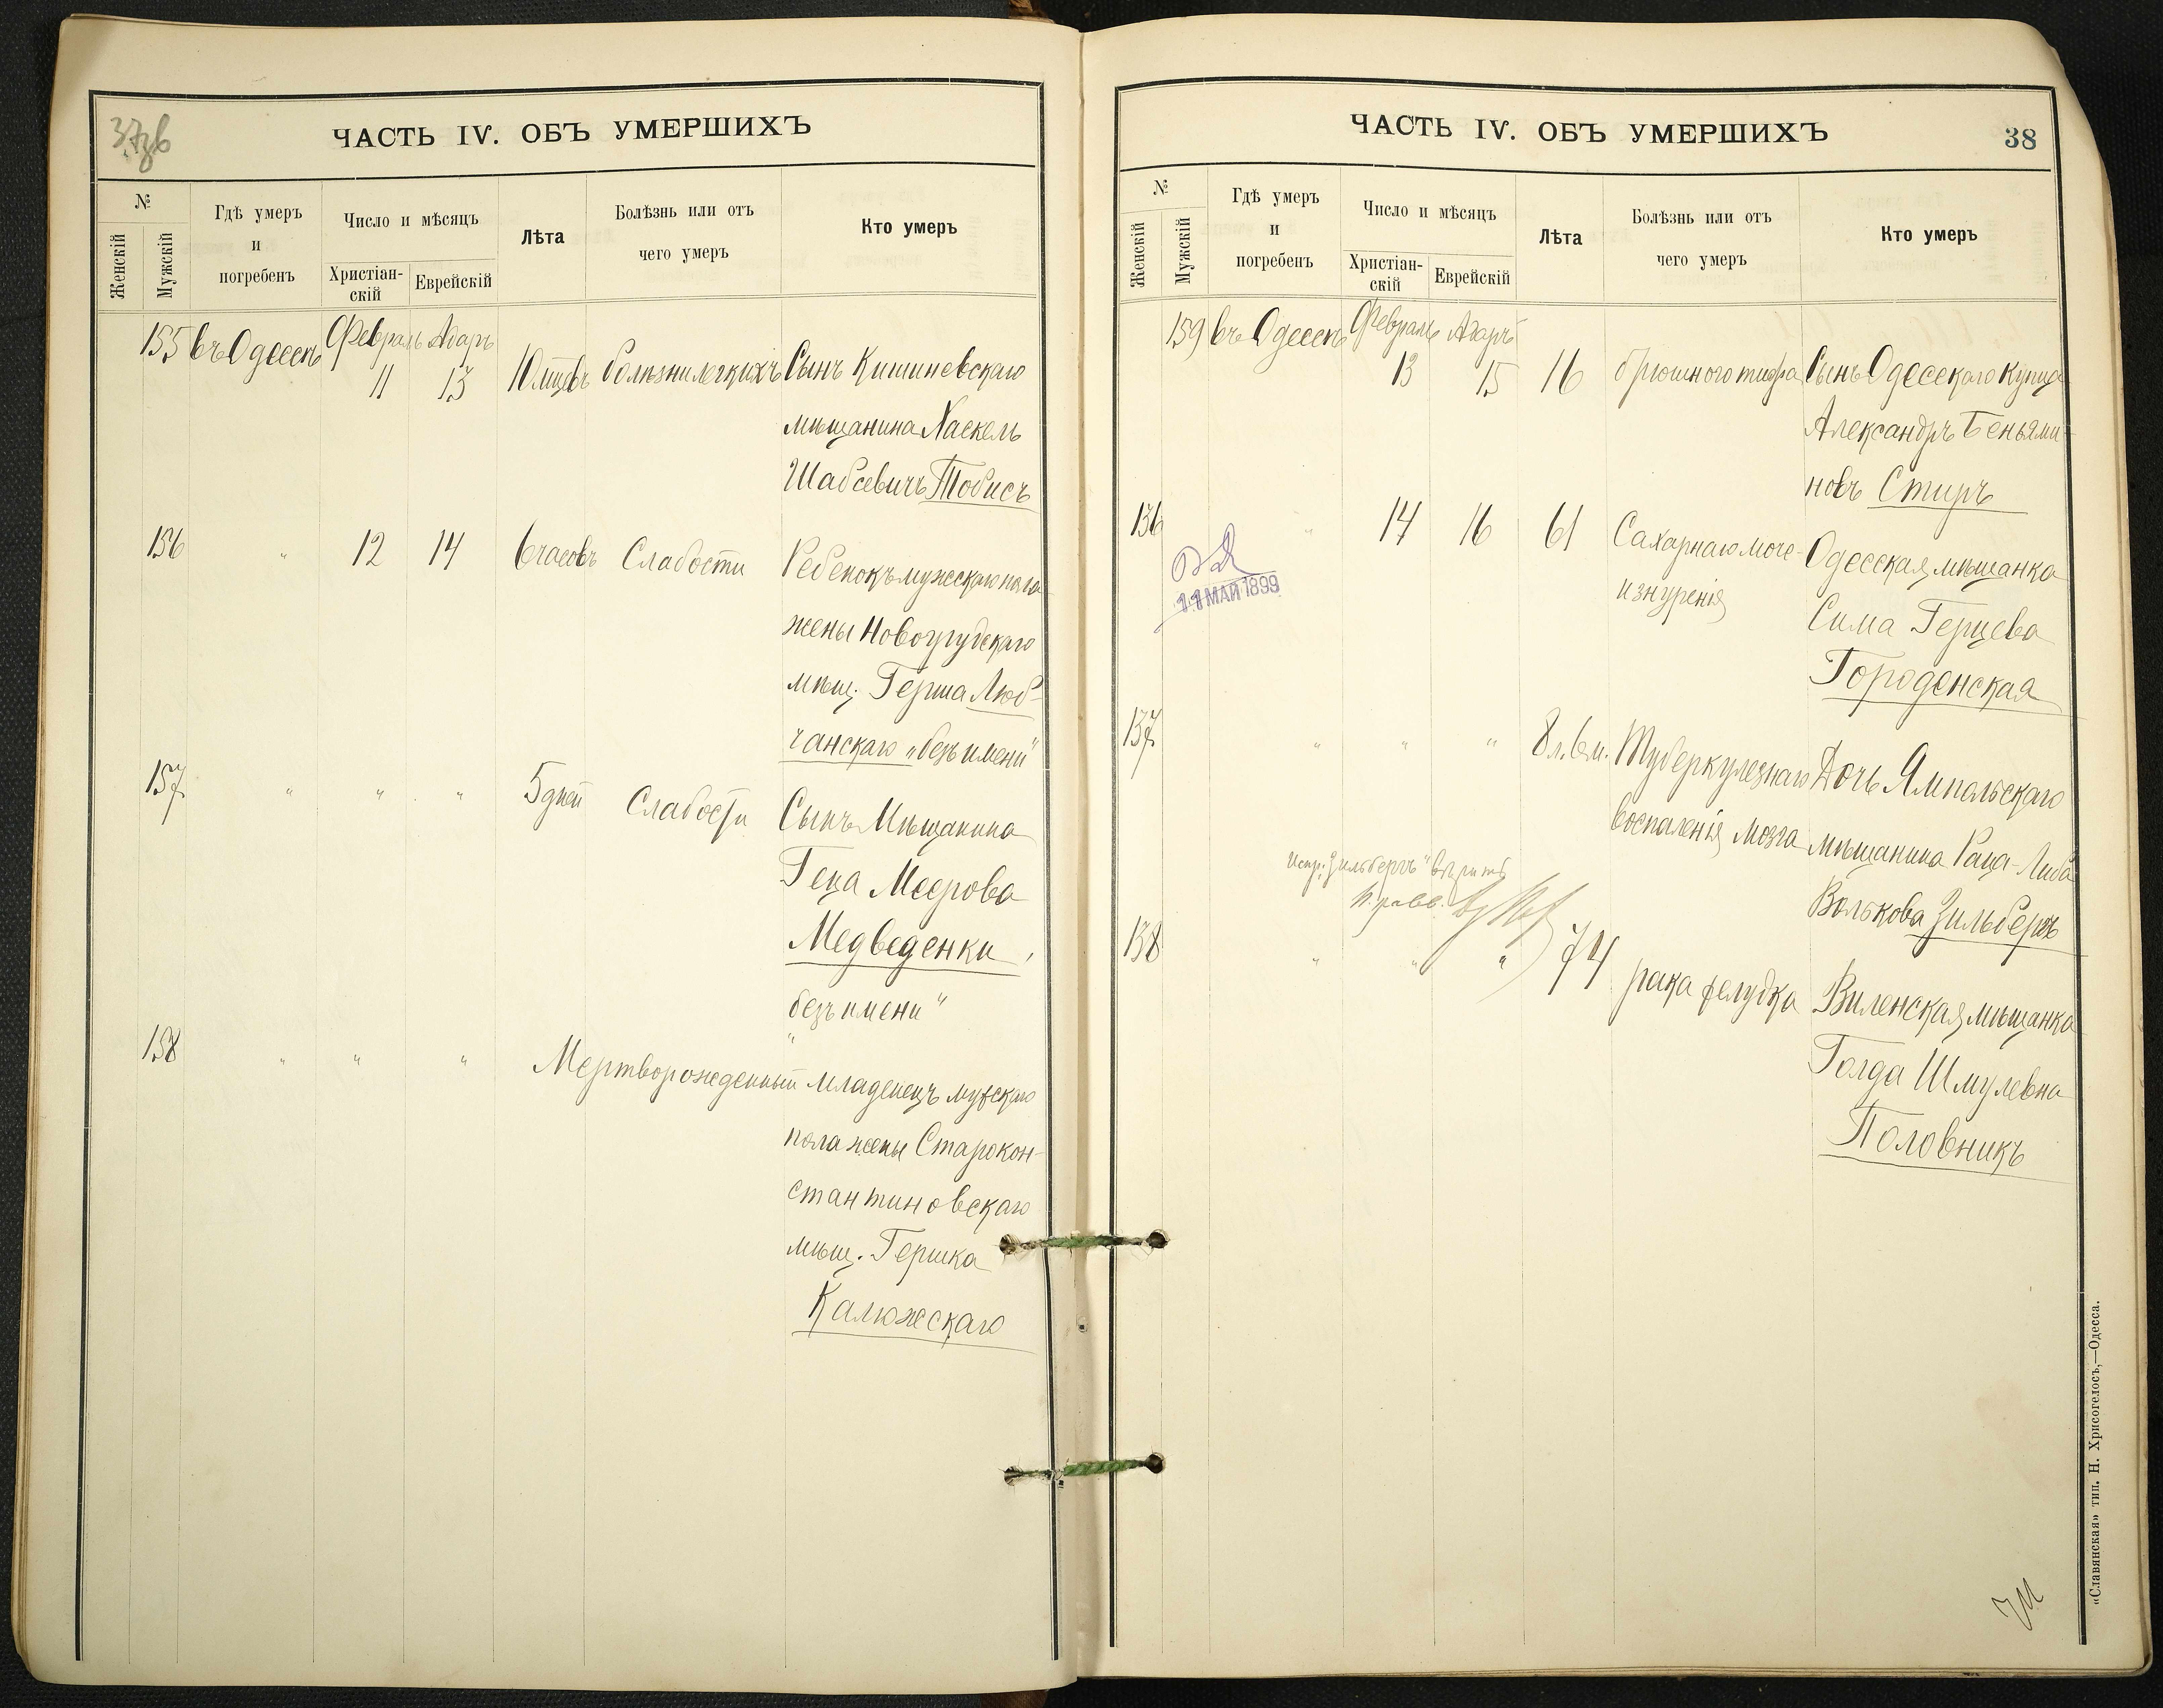 37об
ЧАСТЬ IV. ОБЪ УМЕРШИХЪ
№
Женскій
Мужскій
Гдѣ умеръ
и
погребенъ
Число и мѣсяцъ
Христіан-
скій
Еврейскій
Лѣта
Болѣзнь или отъ
чего умеръ
Кто умеръ
155 въ Одессѣ Февраль Адаръ
11 13 10 мцевъ болѣзни легкихъ Сынъ Кишиневскаго
мѣщанина Хаскель
Шабсевичъ Тобисъ
156 " 12 14 6 часовъ Слабости Ребенокъ мужскаго пола
жены Новогрудскаго
мѣщ. Герша Люб-
чанскаго „безъ имени"
157 " " " 5 дней Слабости Сынъ Мѣщанина
Геца Меерова
Медведенки „
безъ имени"
158 " " " Мертворожденный младенецъ мужскаго
пола жены Старокон-
стантиновскаго
мѣщ. Гершка
Калюжскаго
ЧАСТЬ IV. ОБЪ УМЕРШИХЪ
38
№
Женскій
Мужскій
Гдѣ умеръ
и
погребенъ
Число и мѣсяцъ
Христіан-
скій
Еврейскій
Лѣта
Болѣзнь или отъ
чего умеръ
Кто умеръ
159 въ Одессѣ Февраль Адаръ
13 15 16 брюшного тифа Сынъ Одесскаго Купца
Александръ Беньями-
новъ Стиръ
136 " 14 16 61 Сахарнаго моче-
изнуренія
Одесская мѣщанка
Сима Герцева
Городенская
11 МАЙ 1899
137 " " " 8 л. 6 м. Туберкулезнаго
воспаленія мозга
Дочь Ямпольскаго
мѣщанина Раца-Либа
Волькова Зильберъ
испр: „Зильберъ" вѣрить
К. равв.
138 " " " 74 рака желудка Виленская мѣщанка
Голда Шмулевна
Половникъ
«Славянская» тип. Н. Хрисогелосъ,—Одесса.